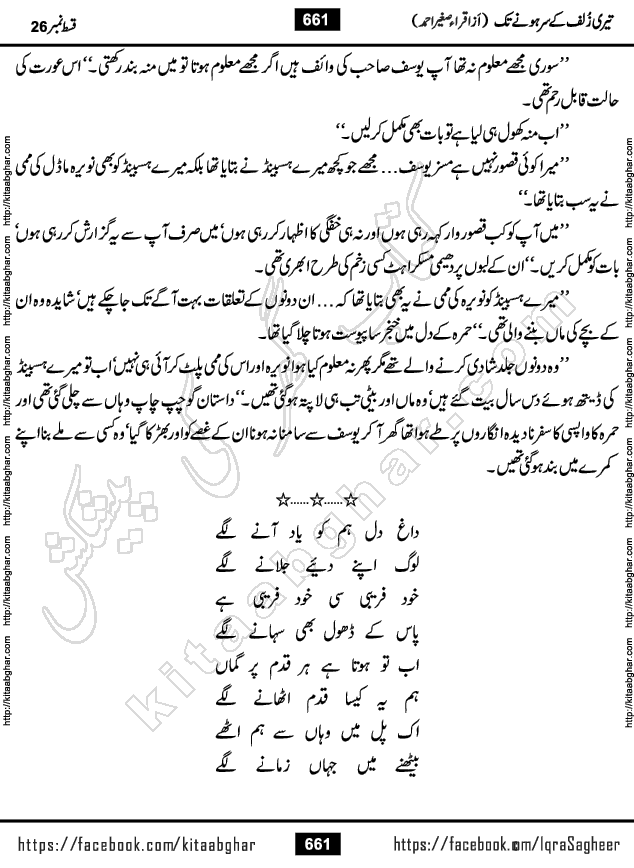 تیری زُلف کے سر ہونے تک (از اقراء صغیر احمد) 661 قسط نمبر 26
’’سوری مجھے معلوم نہ تھا آپ یوسف صاحب کی وائف ہیں اگر مجھے معلوم ہوتا تو میں منہ بند رکھتی۔‘‘ اس عورت کی
حالت قابل رحم تھی۔
’’اب منہ کھول ہی لیا ہے تو بات بھی مکمل کرلیں۔‘‘
’’میرا کوئی قصور نہیں ہے مسز یوسف... مجھے جو کچھ میرے ہسبینڈ نے بتایا تھا بلکہ میرے ہسبینڈ کو بھی نویرہ ماڈل کی ممی
نے یہ سب بتایا تھا۔‘‘
’’میں آپ کو کب قصور وار کہہ رہی ہوں اور نہ ہی خفگی کا اظہار کر رہی ہوں‘ میں صرف آپ سے یہ گزارش کر رہی ہوں‘
بات کو مکمل کریں۔‘‘ ان کے لبوں پر دھیمی مسکراہٹ کسی زخم کی طرح ابھری تھی۔
’’میرے ہسبینڈ کو نویرہ کی ممی نے یہ بھی بتایا تھا کہ... ان دونوں کے تعلقات بہت آگے تک جاچکے ہیں‘ شاید وہ ان
کے بچے کی ماں بننے والی تھی۔‘‘ حمرہ کے دل میں خنجر سا پیوست ہوتا چلا گیا تھا۔
’’وہ دونوں جلد شادی کرنے والے تھے مگر پھر نہ معلوم کیا ہوا نویرہ اور اس کی ممی پلٹ کر آئی ہی نہیں‘ اب تو میرے ہسبینڈ
کی ڈیتھ ہوئے دس سال بیت گئے ہیں‘ وہ ماں اور بیٹی تب ہی لاپتہ ہوگئی تھیں۔‘‘ داستان گو چپ چاپ وہاں سے چلی گئی تھی اور
حمرہ کا واپسی کا سفر نادیدہ انگاروں پر طے ہوا تھا گھر آ کر یوسف سے سامنا نہ ہونا ان کے غصے کو اور بھڑکا گیا‘ وہ کسی سے ملے بنا اپنے
کمرے میں بند ہوگئی تھیں۔
☆......☆......☆
داغ دل ہم کو یاد آنے لگے
لوگ اپنے دئیے جلانے لگے
خود فریبی سی خود فریبی ہے
پاس کے ڈھول بھی سہانے لگے
اب تو ہوتا ہے ہر قدم پر گماں
ہم یہ کیسا قدم اٹھانے لگے
اک پل میں وہاں سے ہم اٹھے
بیٹھنے میں جہاں زمانے لگے
http://kitaabghar.com http://kitaabghar.com http://kitaabghar.com http://kitaabghar.com http://kitaabghar.com http://kitaabghar.com
http://kitaabghar.com http://kitaabghar.com http://kitaabghar.com http://kitaabghar.com http://kitaabghar.com http://kitaabghar.com
کتاب گھر کی پیشکش
kitaabghar.com
https://facebook.com/kitaabghar 661 https://facebook.com/IqraSagheer